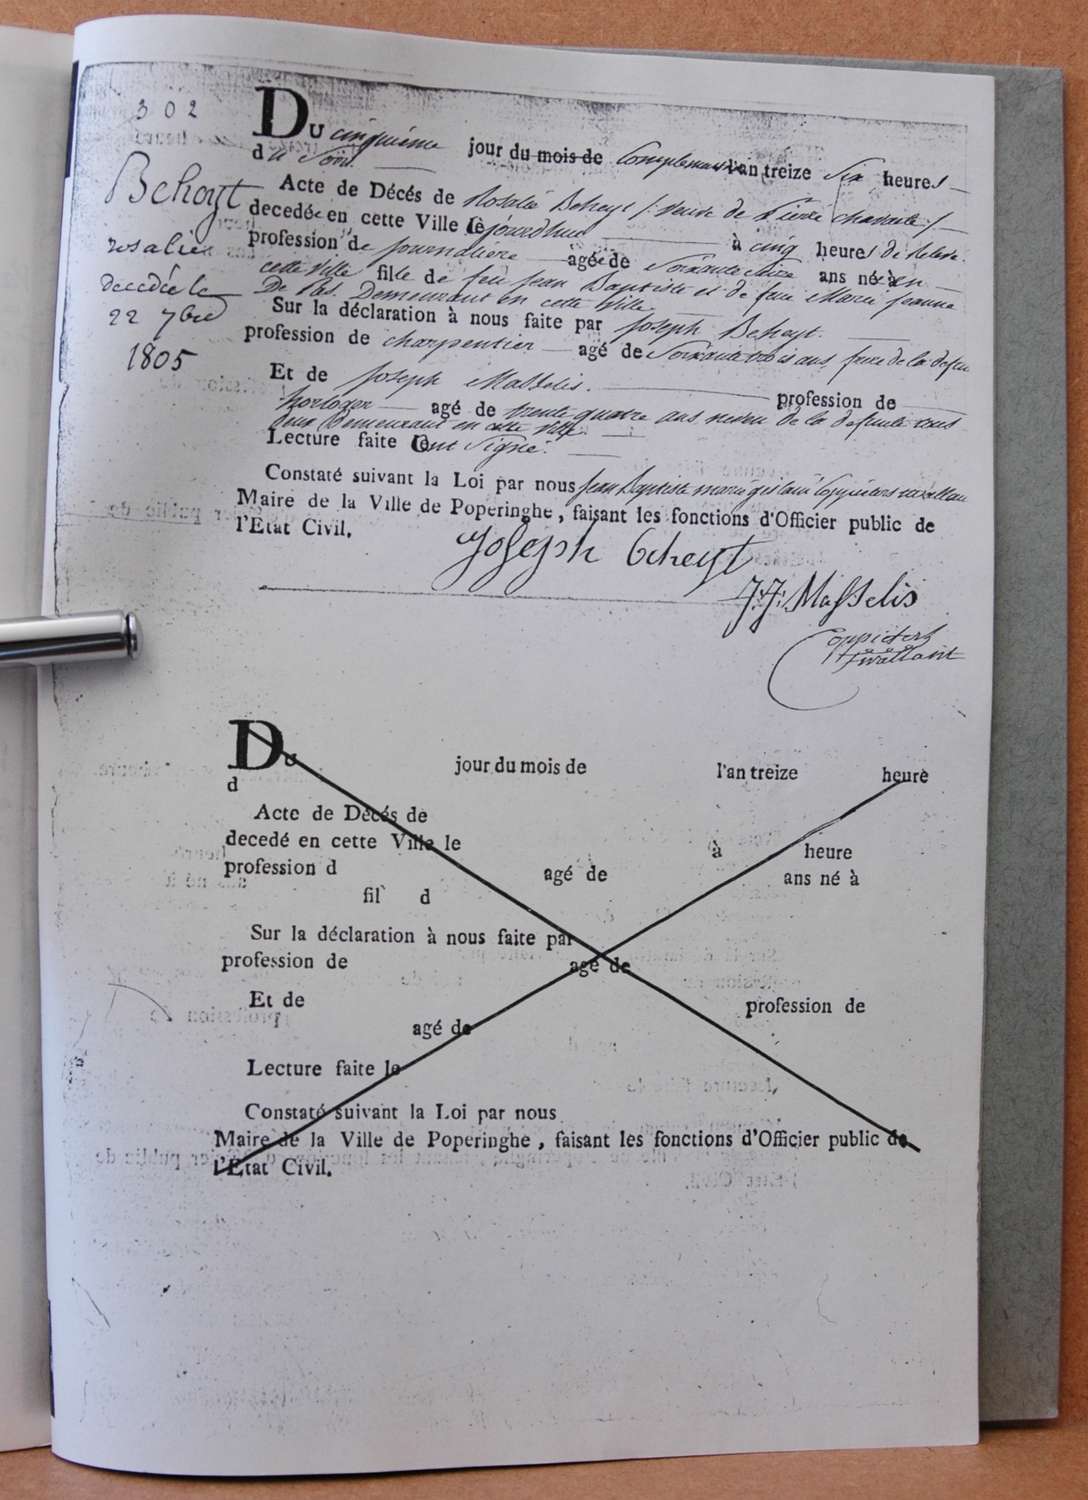 302
Beheyt
rosalie
decedée le
22 7bre
1805
Du cinquième jour du mois de Complementr l'an treize Six heures
du Soir
Acte de Décés de Rosalie Beheyt / veuve de Pierre
decedée en cette Ville le jourdhui à cinq heures de releve
profession de journaliere agée de Soixante ans né à en
cette ville fille de feu Jean Baptiste et de feue Marie Jeanne
Demeurant en cette ville
Sur la déclaration à nous faite par Joseph Beheyt.
profession de charpentier agé de Soixante trois ans frere de la defun
Et de Joseph Masselis. profession de
horloger agé de trente quatre ans neveu de la defunte tous
deux Demeurant en cette ville.
Lecture faite ont Signé.
Constaté suivant la Loi par nous Jean Baptiste marie
Maire de la Ville de Poperinghe, faisant les fonctions d'Officier public de
l'Etat Civil.
Joseph Beheyt
J:J: Masselis
Du jour du mois de l'an treize heure
d
Acte de Décés de
decedé en cette Ville le à heure
profession d agé de ans né à
fil d
Sur la déclaration à nous faite par
profession de agé de
Et de profession de
agé de
Lecture faite le
Constaté suivant la Loi par nous
Maire de la Ville de Poperinghe, faisant les fonctions d'Officier public de
l'Etat Civil.